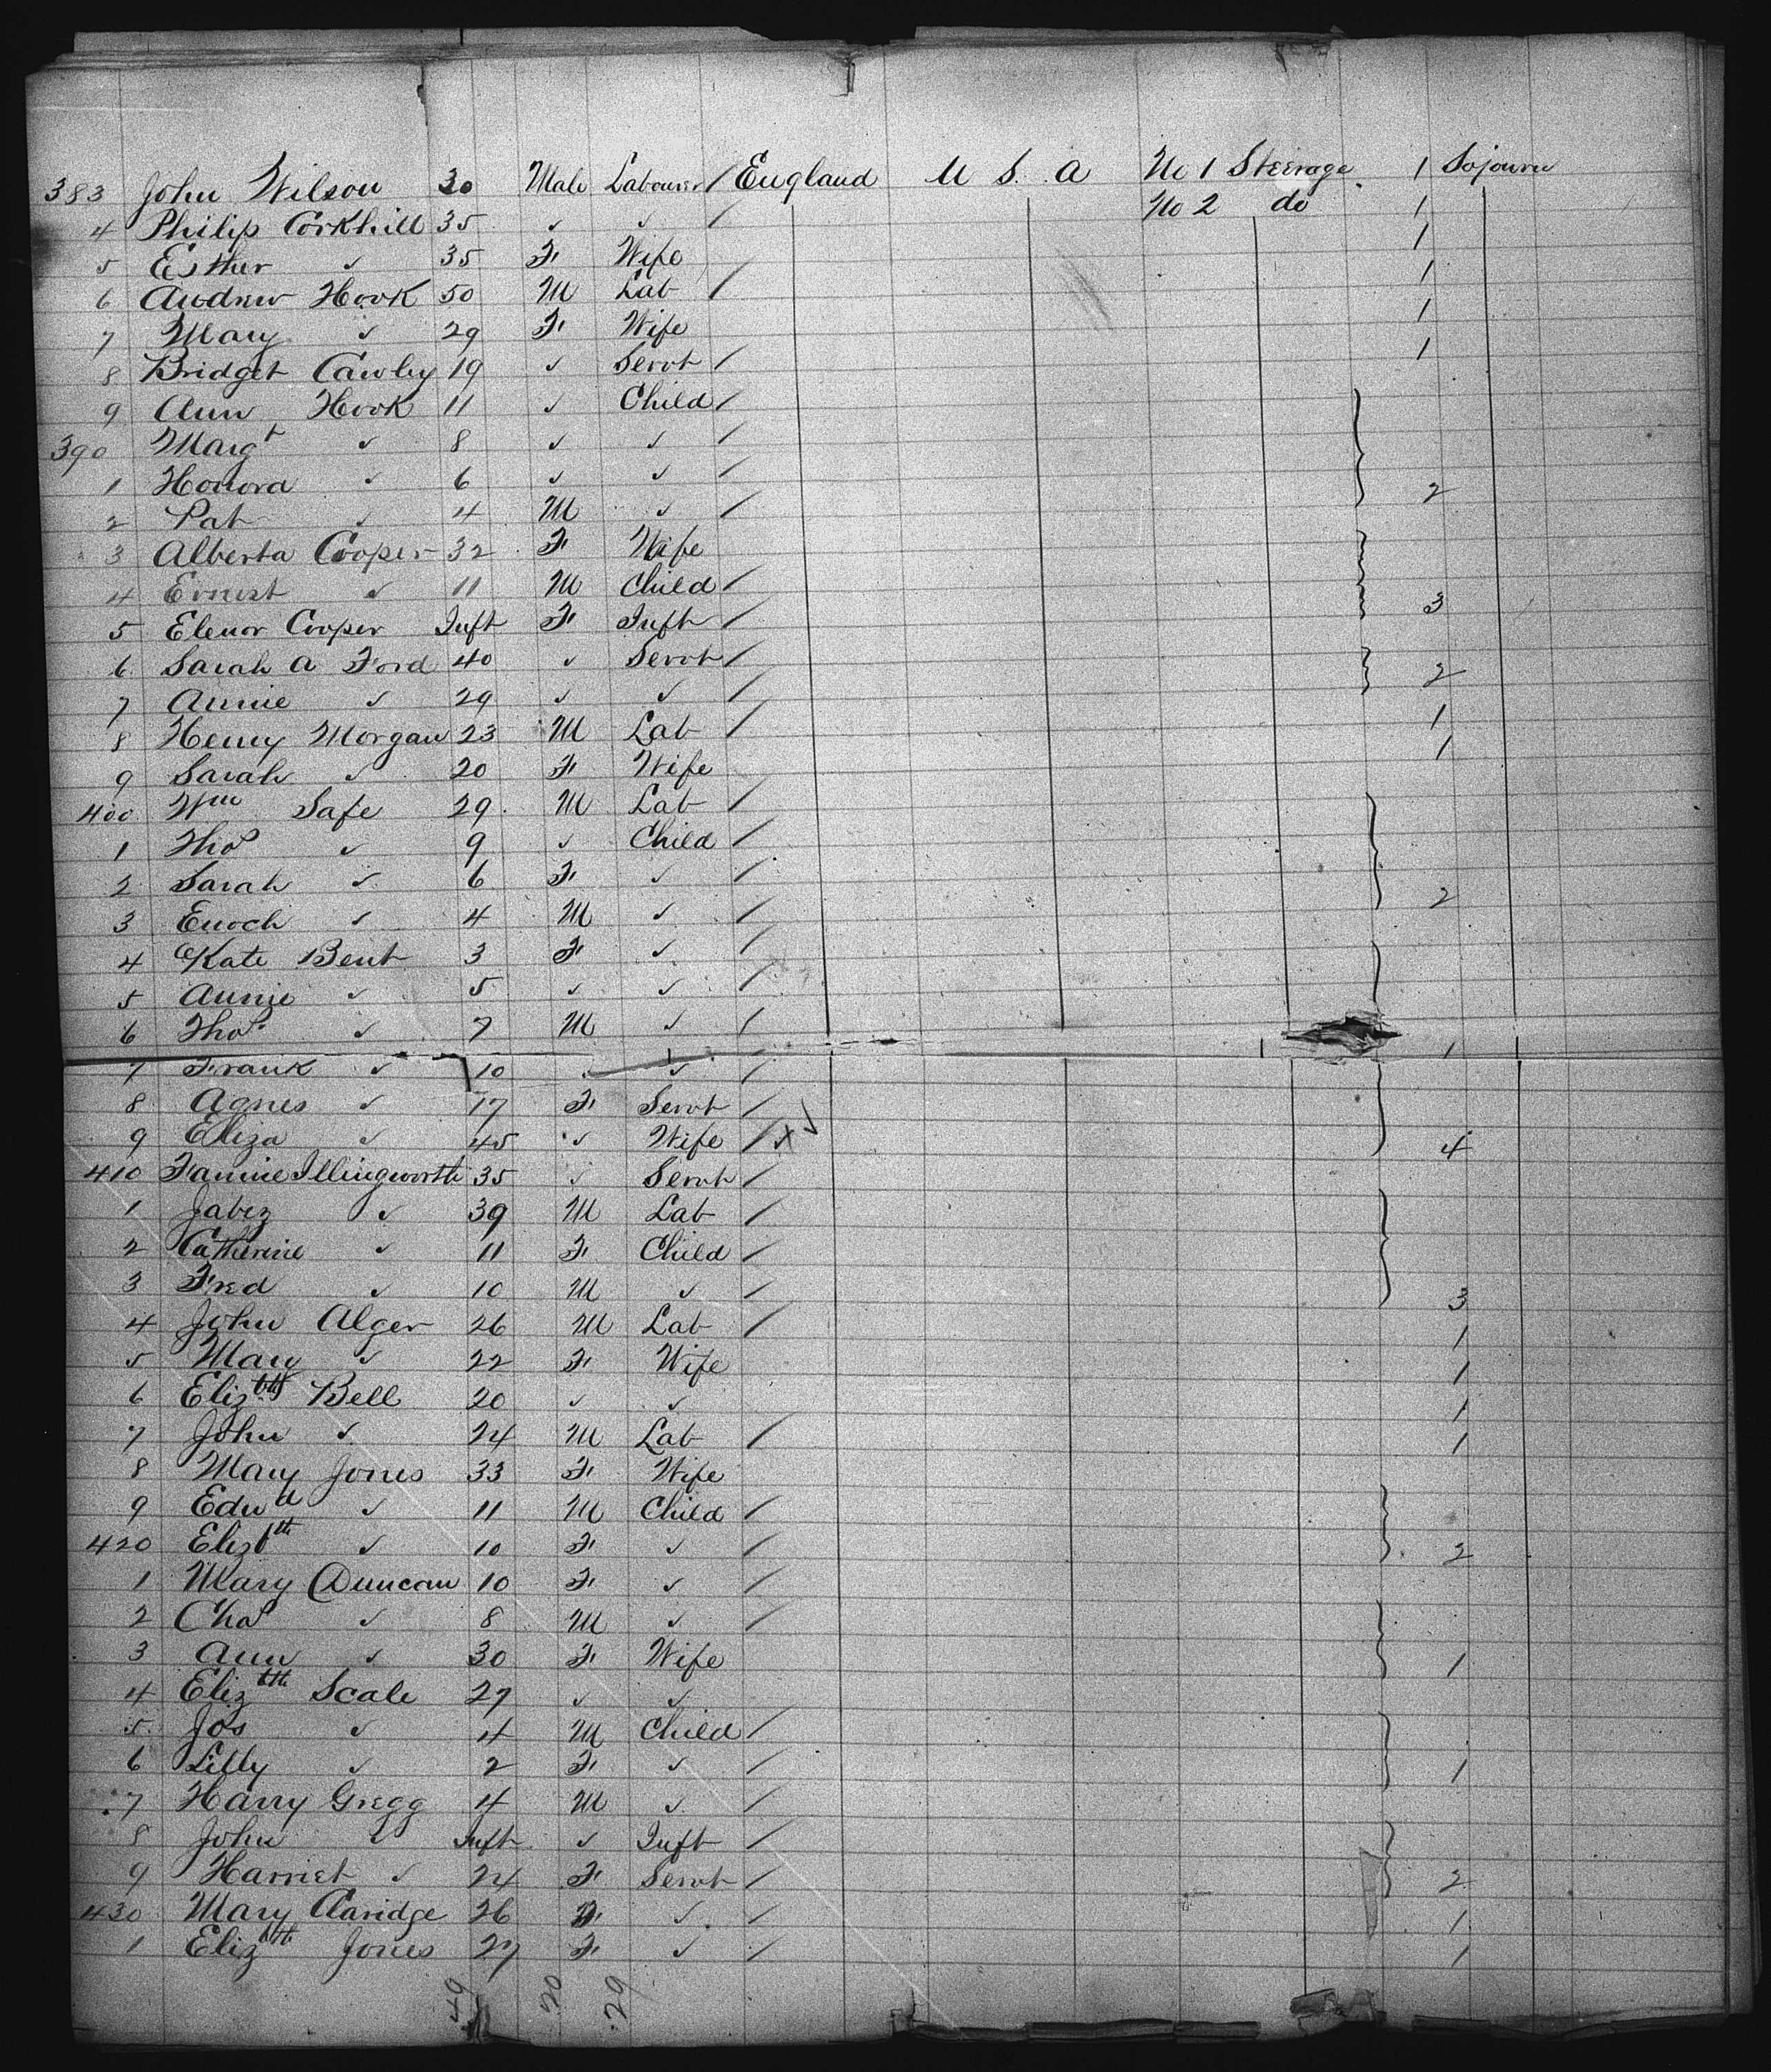 383 John Wilson 30 Male Labourer / England U S. A No 1 Steerage 1 Sojourn
4 Philip Corkhill 35 ✓ ✓ / No 2 do 1
5 Esther ✓ 35 F Wife 1
6 Andrew Hook 50 M Lab / 1
7 Mary ✓ 29 F Wife 1
8 Bridget Cawley 19 ✓ Servt / 1
9 Ann Hook 11 ✓ Child /
390 Margt ✓ 8 ✓ ✓ /
1 Honora ✓ 6 ✓ ✓ / 2
2 Pat ✓ 4 M ✓ /
3 Alberta Cooper 32 F Wife
4 Ernest ✓ 11 M Child / 3
5 Elenor Cooper Inft F Inft /
6 Sarah A Ford 40 ✓ Servt / 2
7 Annie ✓ 29 ✓ ✓ /
8 Henry Morgan 23 M Lab / 1
9 Sarah ✓ 20 F Wife 1
400 Wm Safe 29 M Lab /
1 Thos ✓ 9 ✓ Child /
2 Sarah ✓ 6 F ✓ /
3 Enoch ✓ 4 M ✓ / 2
4 Kate Bent 3 F ✓ /
5 Annie ✓ 5 ✓ ✓ /
6 Thos ✓ 7 M ✓ /
7 Frank ✓ 10 ✓ ✓ / 1
8 Agnes ✓ 17 F Servt /
9 Eliza ✓ 45 ✓ Wife / x ✓ 4
410 Fannie Illingworth 35 ✓ Servt /
1 Jabez ✓ 39 M Lab /
2 Catherine ✓ 11 F Child /
3 Fred ✓ 10 M ✓ / 3
4 John Alger 26 M Lab / 1
5 Mary ✓ 22 F Wife 1
6 Elizbth Bell 20 ✓ ✓ 1
7 John ✓ 24 M Lab / 1
8 Mary Jones 33 F Wife
9 Edwd ✓ 11 M Child /
420 Elizbth ✓ 10 F ✓ / 2
1 Mary Duncan 10 F ✓ /
2 Chas ✓ 8 M ✓ /
3 Ann ✓ 30 F Wife 1
4 Elizbth Scale 27 ✓ ✓
5 Jos ✓ 4 M Child /
6 Lilly ✓ 2 F ✓ / 1
7 Harry Gregg 4 M ✓ /
8 John ✓ Inft ✓ Inft /
9 Harriet ✓ 24 F Servt / 2
430 Mary Claridge 26 F ✓ / 1
1 Elizbth Jones 27 F ✓ / 1
49 20 29